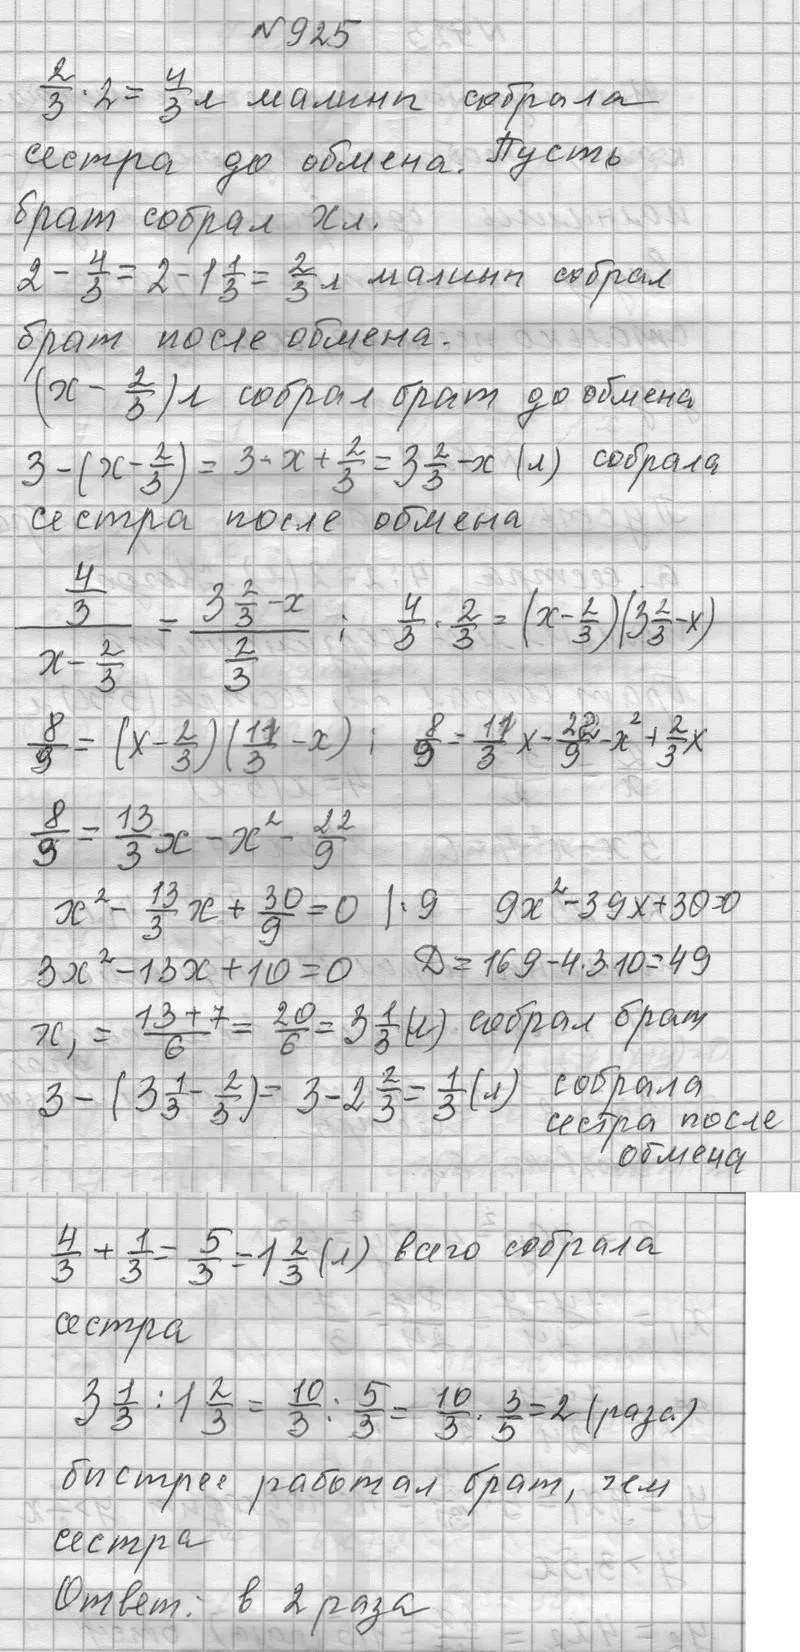 №925
2/3 · 2 = 4/3 л малины собрала
сестра до обмена. Пусть
брат собрал x л.
2 - 4/3 = 2 - 1 1/3 = 2/3 л малины собрал
брат после обмена.
(x - 2/3) л собрал брат до обмена
3 - (x - 2/3) = 3 - x + 2/3 = 3 2/3 - x (л) собрала
сестра после обмена
(4/3)/(x - 2/3) = (3 2/3 - x)/(2/3) ; 4/3 · 2/3 = (x - 2/3)(3 2/3 - x)
8/9 = (x - 2/3)(11/3 - x) ; 8/9 = 11/3 x - 22/9 - x² + 2/3 x
8/9 = 13/3 x - x² - 22/9
x² - 13/3 x + 30/9 = 0 | · 9 9x² - 39x + 30 = 0
3x² - 13x + 10 = 0 D = 169 - 4·3·10 = 49
x₁ = (13 + 7)/6 = 20/6 = 3 1/3 (л) собрал брат
3 - (3 1/3 - 2/3) = 3 - 2 2/3 = 1/3 (л) собрала
сестра после
обмена
4/3 + 1/3 = 5/3 = 1 2/3 (л) всего собрала
сестра
3 1/3 : 1 2/3 = 10/3 : 5/3 = 10/3 · 3/5 = 2 (раза)
быстрее работал брат, чем
сестра
Ответ: в 2 раза